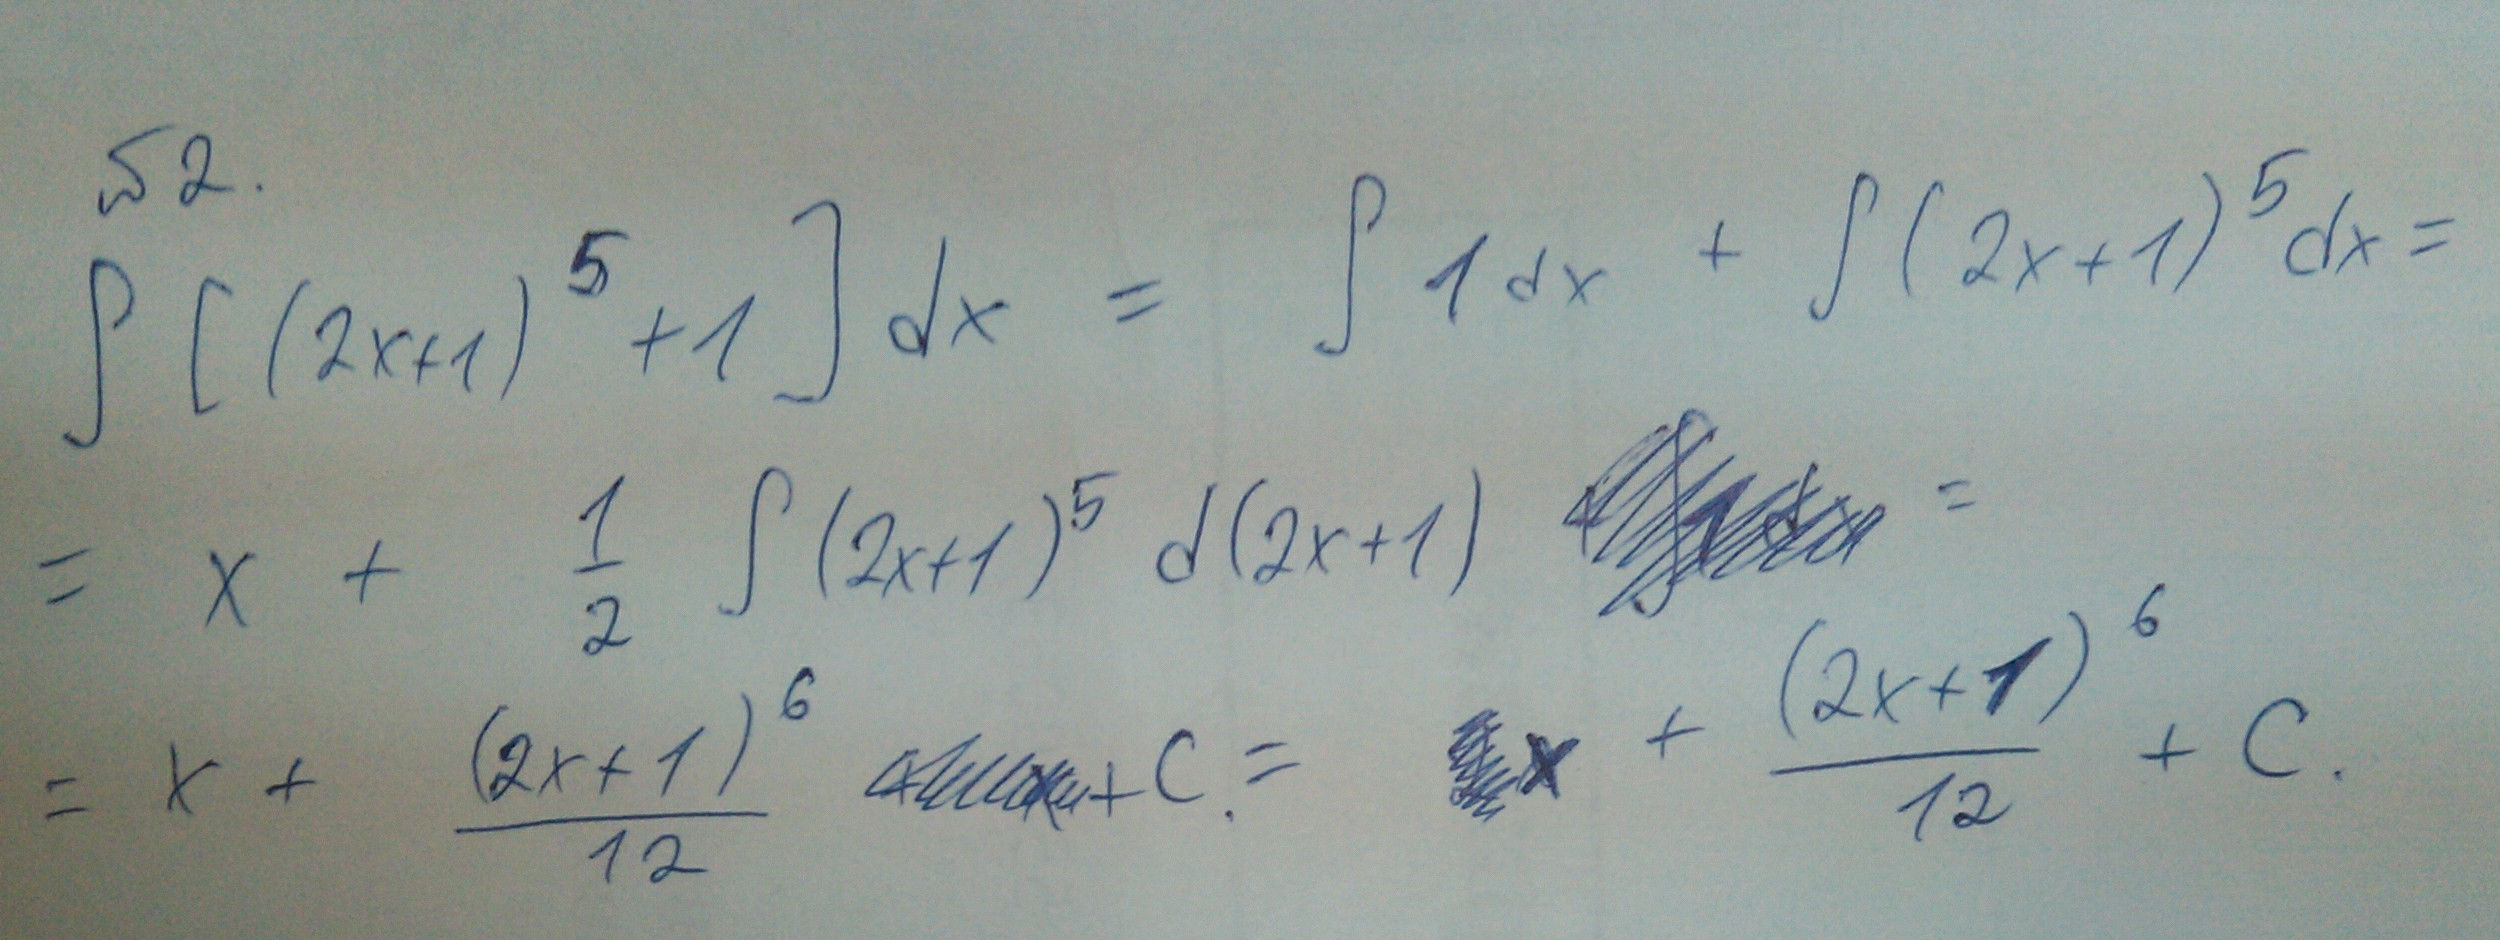 №2.
∫[(2x+1)⁵+1]dx = ∫1dx + ∫(2x+1)⁵dx =
= x + 1/2 ∫(2x+1)⁵ d(2x+1) =
= x + (2x+1)⁶/12 + C. = x + (2x+1)⁶/12 + C.